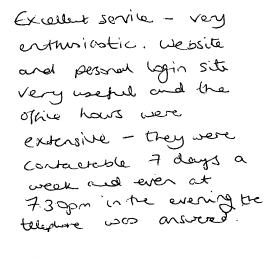 Excellent service - very
enthusiastic. Website
and personal login site
very useful and the
office hours were
extensive - they were
contactable 7 days a
week and even at
7.30pm in the evening the
telephone was answered.